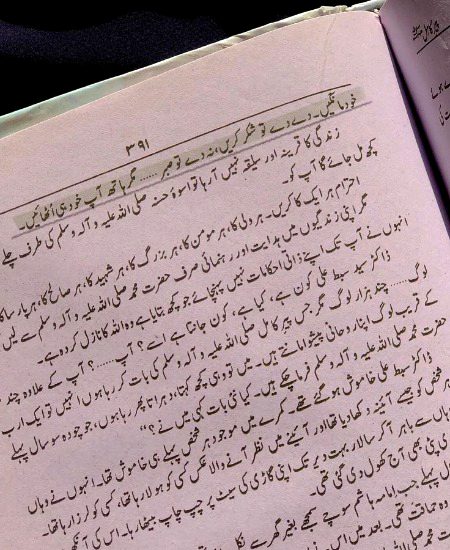 ۳۹۱
خود مانگیں۔ دے دے تو شکر کریں، نہ دے تو صبر ...... مگر ہاتھ آپ خود ہی اُٹھائیں۔
زندگی کا قرینہ اور سلیقہ نہیں آ رہا تو اسوۂ حسنہ صلی اللہ علیہ وآلہ وسلم کی طرف چلے
کچھ مل جائے گا آپ کو۔
احترام ہر ایک کا کریں۔ ہر ولی کا، ہر مومن کا، ہر بزرگ کا، ہر شہید کا، ہر صالح کا، ہر پارسا کا
مگر اپنی زندگیوں میں ہدایت اور رہنمائی صرف حضرت محمد صلی اللہ علیہ وآلہ وسلم سے لیں
انہوں نے آپ تک اپنے ذاتی احکامات نہیں پہنچائے جو کچھ بتایا ہے وہ اللہ کا نازل کردہ ہے۔
ڈاکٹر سید سبط علی کون ہے، کیا ہے، کون جانتا ہے اسے؟ آپ ......؟ آپ کے علاوہ چند
لوگ ...... چند ہزار لوگ مگر جس پیر کامل صلی اللہ علیہ وآلہ وسلم کی بات کر رہا ہوں انہیں تو ایک ارب
کے قریب لوگ اپنا روحانی پیشوا مانتے ہیں۔ میں تو وہی کچھ کہتا، دہراتا پھر رہا ہوں، جو چودہ سو سال پہلے
حضرت محمد صلی اللہ علیہ وآلہ وسلم فرما چکے ہیں۔ کیا نئی بات کہی میں نے؟"
ڈاکٹر سبط علی خاموش ہو گئے تھے۔ کمرے میں موجود ہر شخص پہلے ہی خاموش تھا۔ انہوں نے وہاں
ہر شخص کو جیسے آئینہ دکھا دیا تھا اور آئینے میں نظر آنے والا عکس کسی کو ہولا رہا تھا، کسی کو لرزا رہا تھا۔
وہاں سے باہر آ کر سالار بہت دیر تک اپنی گاڑی کی سیٹ پر چپ چاپ بیٹھا رہا۔ اس کی آنکھوں
پٹی بھی آج کھول دی گئی تھی۔
سال پہلے جب امامہ ہاشم سوچے سمجھے بغیر گھر سے نکل
وہ حماقت تھی۔ بعد میں اس